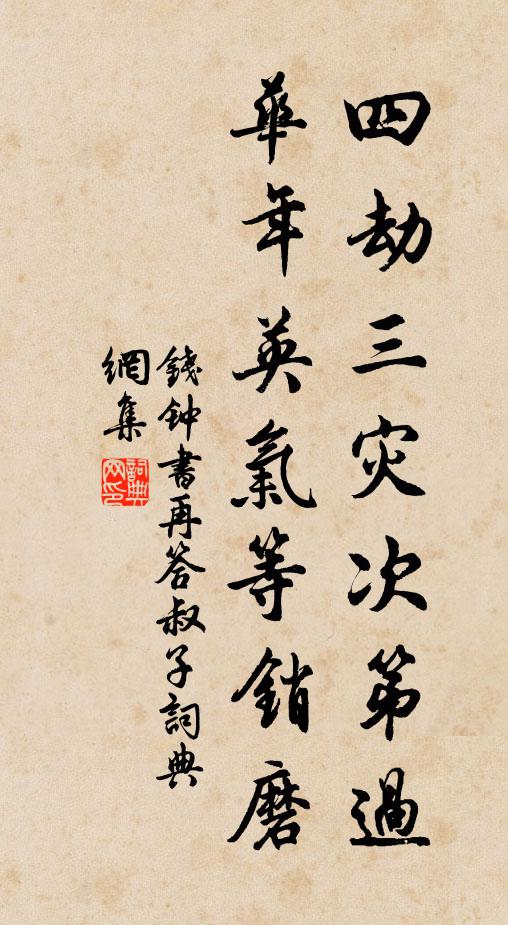 四劫三灾次第過
華年英氣等銷磨
錢钟書再答叔子詞典
網集
詞典网印